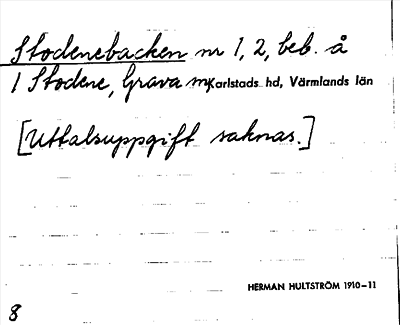 Stodenebacken nr 1, 2, beb. å
1 Stodene, Grava sn, Karlstads hd, Värmlands län
[Uttalsuppgift saknas.]
HERMAN HULTSTRÖM 1910–11
8